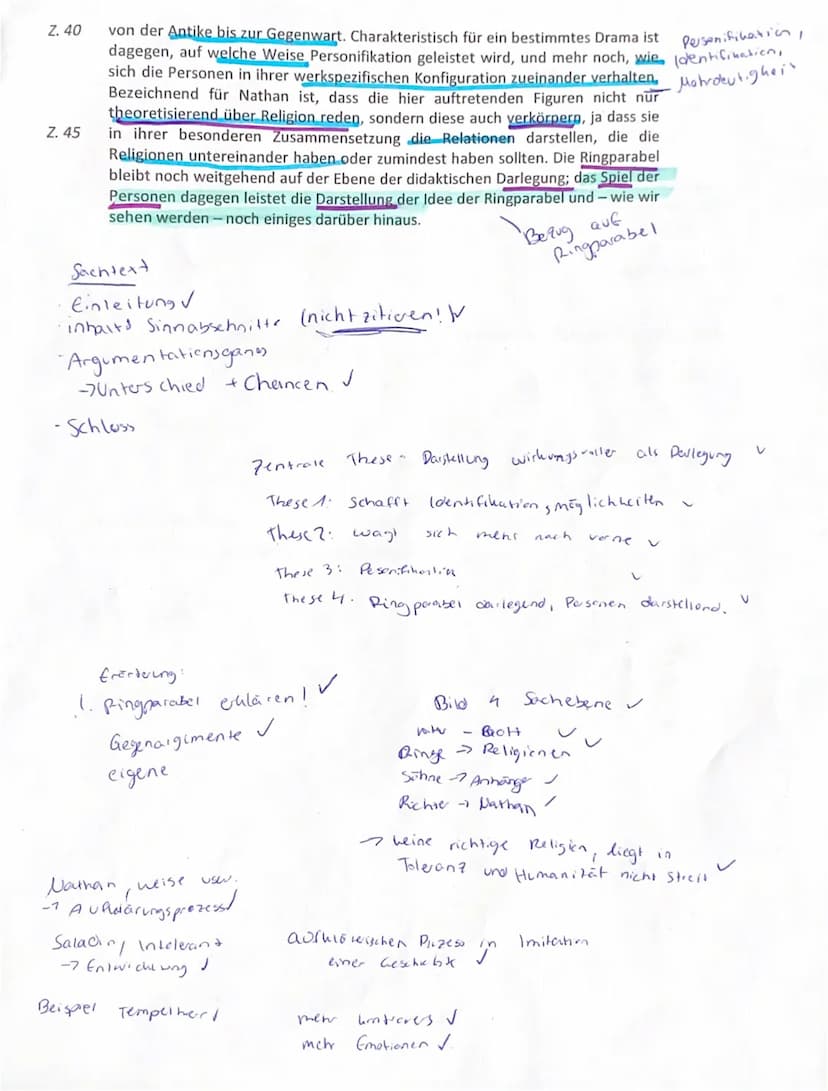 Z. 40 von der Antike bis zur Gegenwart. Charakteristisch für ein bestimmtes Drama ist
dagegen, auf welche Weise Personifikation geleistet wird, und mehr noch, wie
sich die Personen in ihrer werkspezifischen Konfiguration zueinander verhalten.
Bezeichnend für Nathan ist, dass die hier auftretenden Figuren nicht nur
theoretisierend über Religion reden, sondern diese auch verkörpern, ja dass sie
Z. 45 in ihrer besonderen Zusammensetzung die Relationen darstellen, die die
Religionen untereinander haben oder zumindest haben sollten. Die Ringparabel
bleibt noch weitgehend auf der Ebene der didaktischen Darlegung; das Spiel der
Personen dagegen leistet die Darstellung der Idee der Ringparabel und – wie wir
sehen werden – noch einiges darüber hinaus.
Personifikation,
Identifikation,
Mehrdeutigkeit
Bezug auf
Ringparabel
Sachtext
· Einleitung ✓
· Inhalt Sinnabschnitte (nicht zitieren! ✓
- Argumentationsgang
→ Unterschied + Chancen ✓
- Schluss
Zentrale These - Darstellung wirkungsvoller als Darlegung ✓
These 1: schafft Identifikationsmöglichkeiten ✓
These 2: wagt sich mehr nach vorne ✓
These 3: Personifikation ✓
These 4. Ringparabel darlegend, Personen darstellend. ✓
Erörterung:
1. Ringparabel erklären! ✓
Gegenargumente ✓
eigene
Bild Sachebene ✓
Vater - Gott ✓
Ringe → Religionen ✓
Söhne → Anhänger ✓
Richter → Nathan ✓
→ keine richtige Religion, liegt in
Toleranz und Humanität nicht Streit ✓
Nathan, weise usw.
→ Aufklärungsprozess ✓
Saladin, Intolerant
→ Entwicklung ✓
aufklärerischen Prozess in Imitation
einer Geschichte ✓
Beispiel Tempelherr ✓
mehr ✓
mehr Emotionen ✓